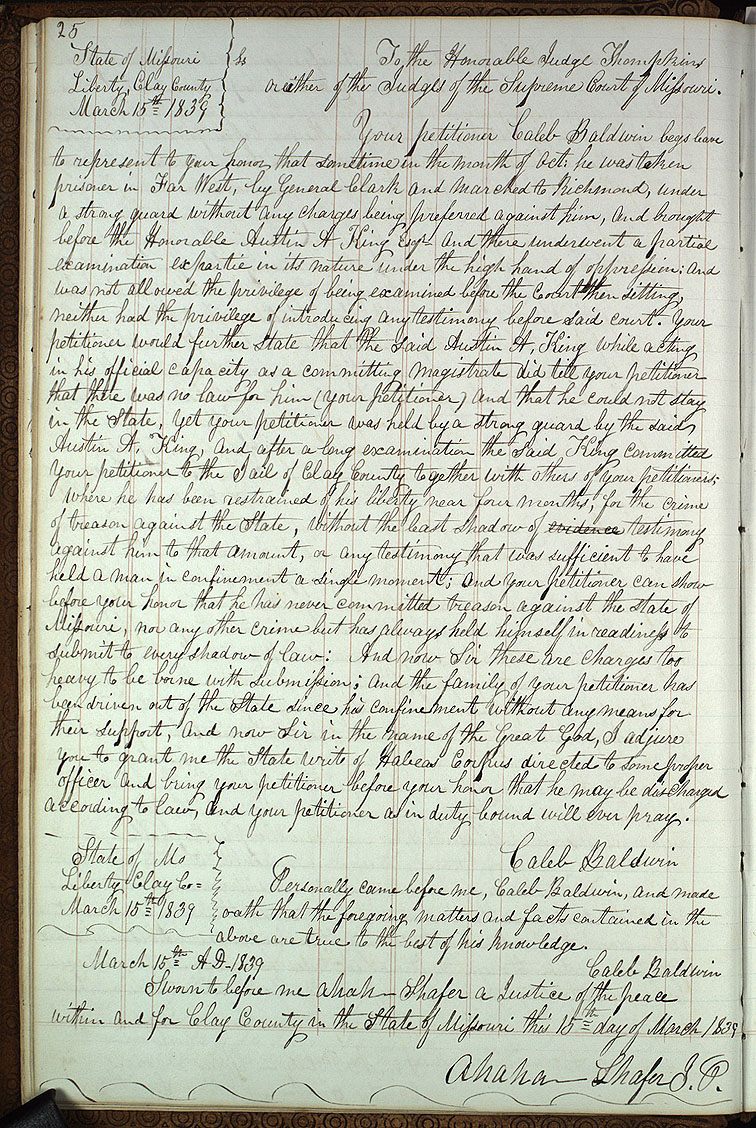 25
State of Missouri } ss To the Honorable Judge Thompkins
Liberty, Clay County or either of the Judges of the Supreme Court of Missouri.
March 15th 1839
Your petitioner Caleb Baldwin begs leave
to represent to your honor that sometime in the month of Oct: he was taken
prisoner in Far West, by General Clark and marched to Richmond, under
a strong guard without any charges being preferred against him, and brought
before the Honorable Austin A King Esqr and there underwent a partial
examination expartie in its nature under the high hand of oppression: and
was not allowed the privilege of being examined before the Court then sitting,
neither had the privilege of introducing any testimony before said court. Your
petitioner would further state that the said Austin A, King while acting
in his official capacity as a committing magistrate did tell your petitioner
that there was no law for him (your petitioner) and that he could not stay
in the State, yet your petitioner was held by a strong guard by the said
Austin A. King, and after a long examination the said King committed
your petitioner to the Jail of Clay County together with others of your petitioners;
where he has been restrained of his liberty near four months, for the crime
of treason against the State, without the least shadow of evidence testimony
against him to that amount, or any testimony that was sufficient to have
held a man in confinement a single moment; and your petitioner can show
before your honor that he has never committed treason against the State of
Missouri, nor any other crime but has always held himself in readiness to
submit to every shadow of law: And now Sir these are charges too
heavy to be borne with submission; and the family of your petitioner has
been driven out of the State since his confinement without any means for
their support, and now Sir in the name of the Great God, I adjure
you to grant me the State writs of Habeas Corpus directed to some proper
officer and bring your petitioner before your honor that he may be discharged
according to law, and your petitioner as in duty bound will ever pray.
Caleb Baldwin
State of Mo
Liberty, Clay Co= Personally came before me, Caleb Baldwin, and made
March 15th 1839 oath that the foregoing matters and facts contained in the
above are true to the best of his knowledge.
March 15th A D-1839 Caleb Baldwin
Sworn to before me Abaham Shafer a Justice of the peace
within and for Clay County in the State of Missouri this 15th day of March 1839
Shafer J. P.